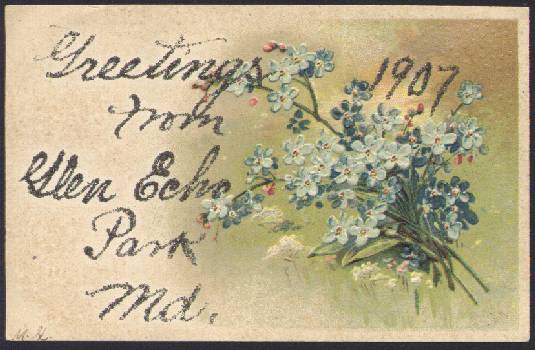 Greetings
1907
from
Glen Echo
Park
Md.